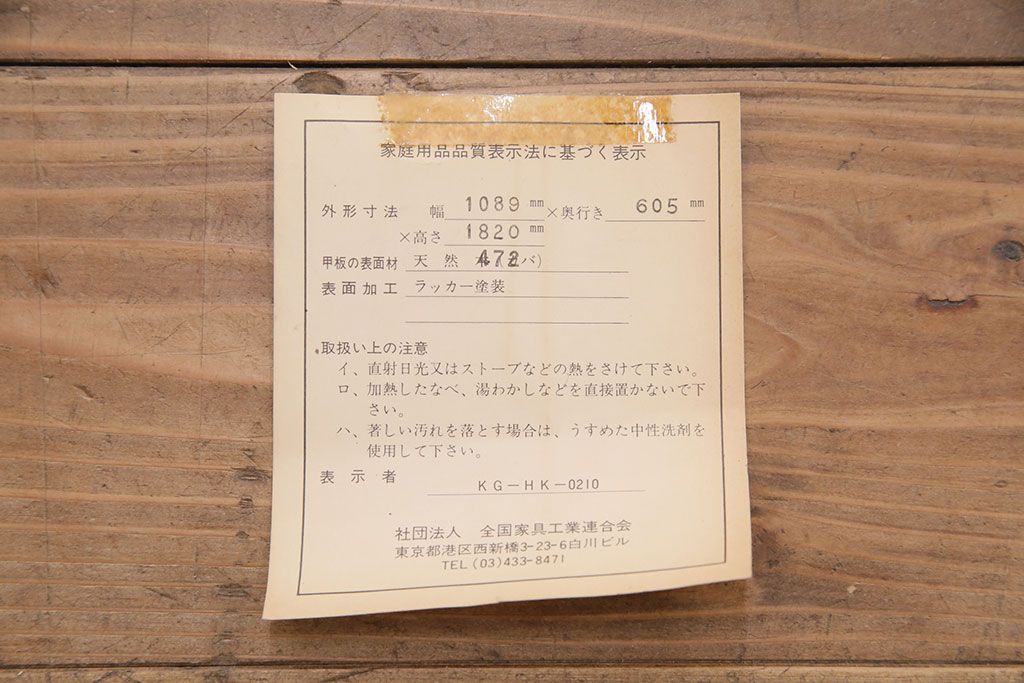 家庭用品品質表示法に基づく表示
外形寸法 幅 1089 mm ×奥行き 605 mm
×高さ 1820 mm
甲板の表面材 天然 472 バ)
表面加工 ラッカー塗装
取扱い上の注意
イ、直射日光又はストーブなどの熱をさけて下さい。
ロ、加熱したなべ、湯わかしなどを直接置かないで下
さい。
ハ、著しい汚れを落とす場合は、うすめた中性洗剤を
使用して下さい。
表示者 KG-HK-0210
社団法人 全国家具工業連合会
東京都港区西新橋3-23-6白川ビル
TEL(03)433-8471